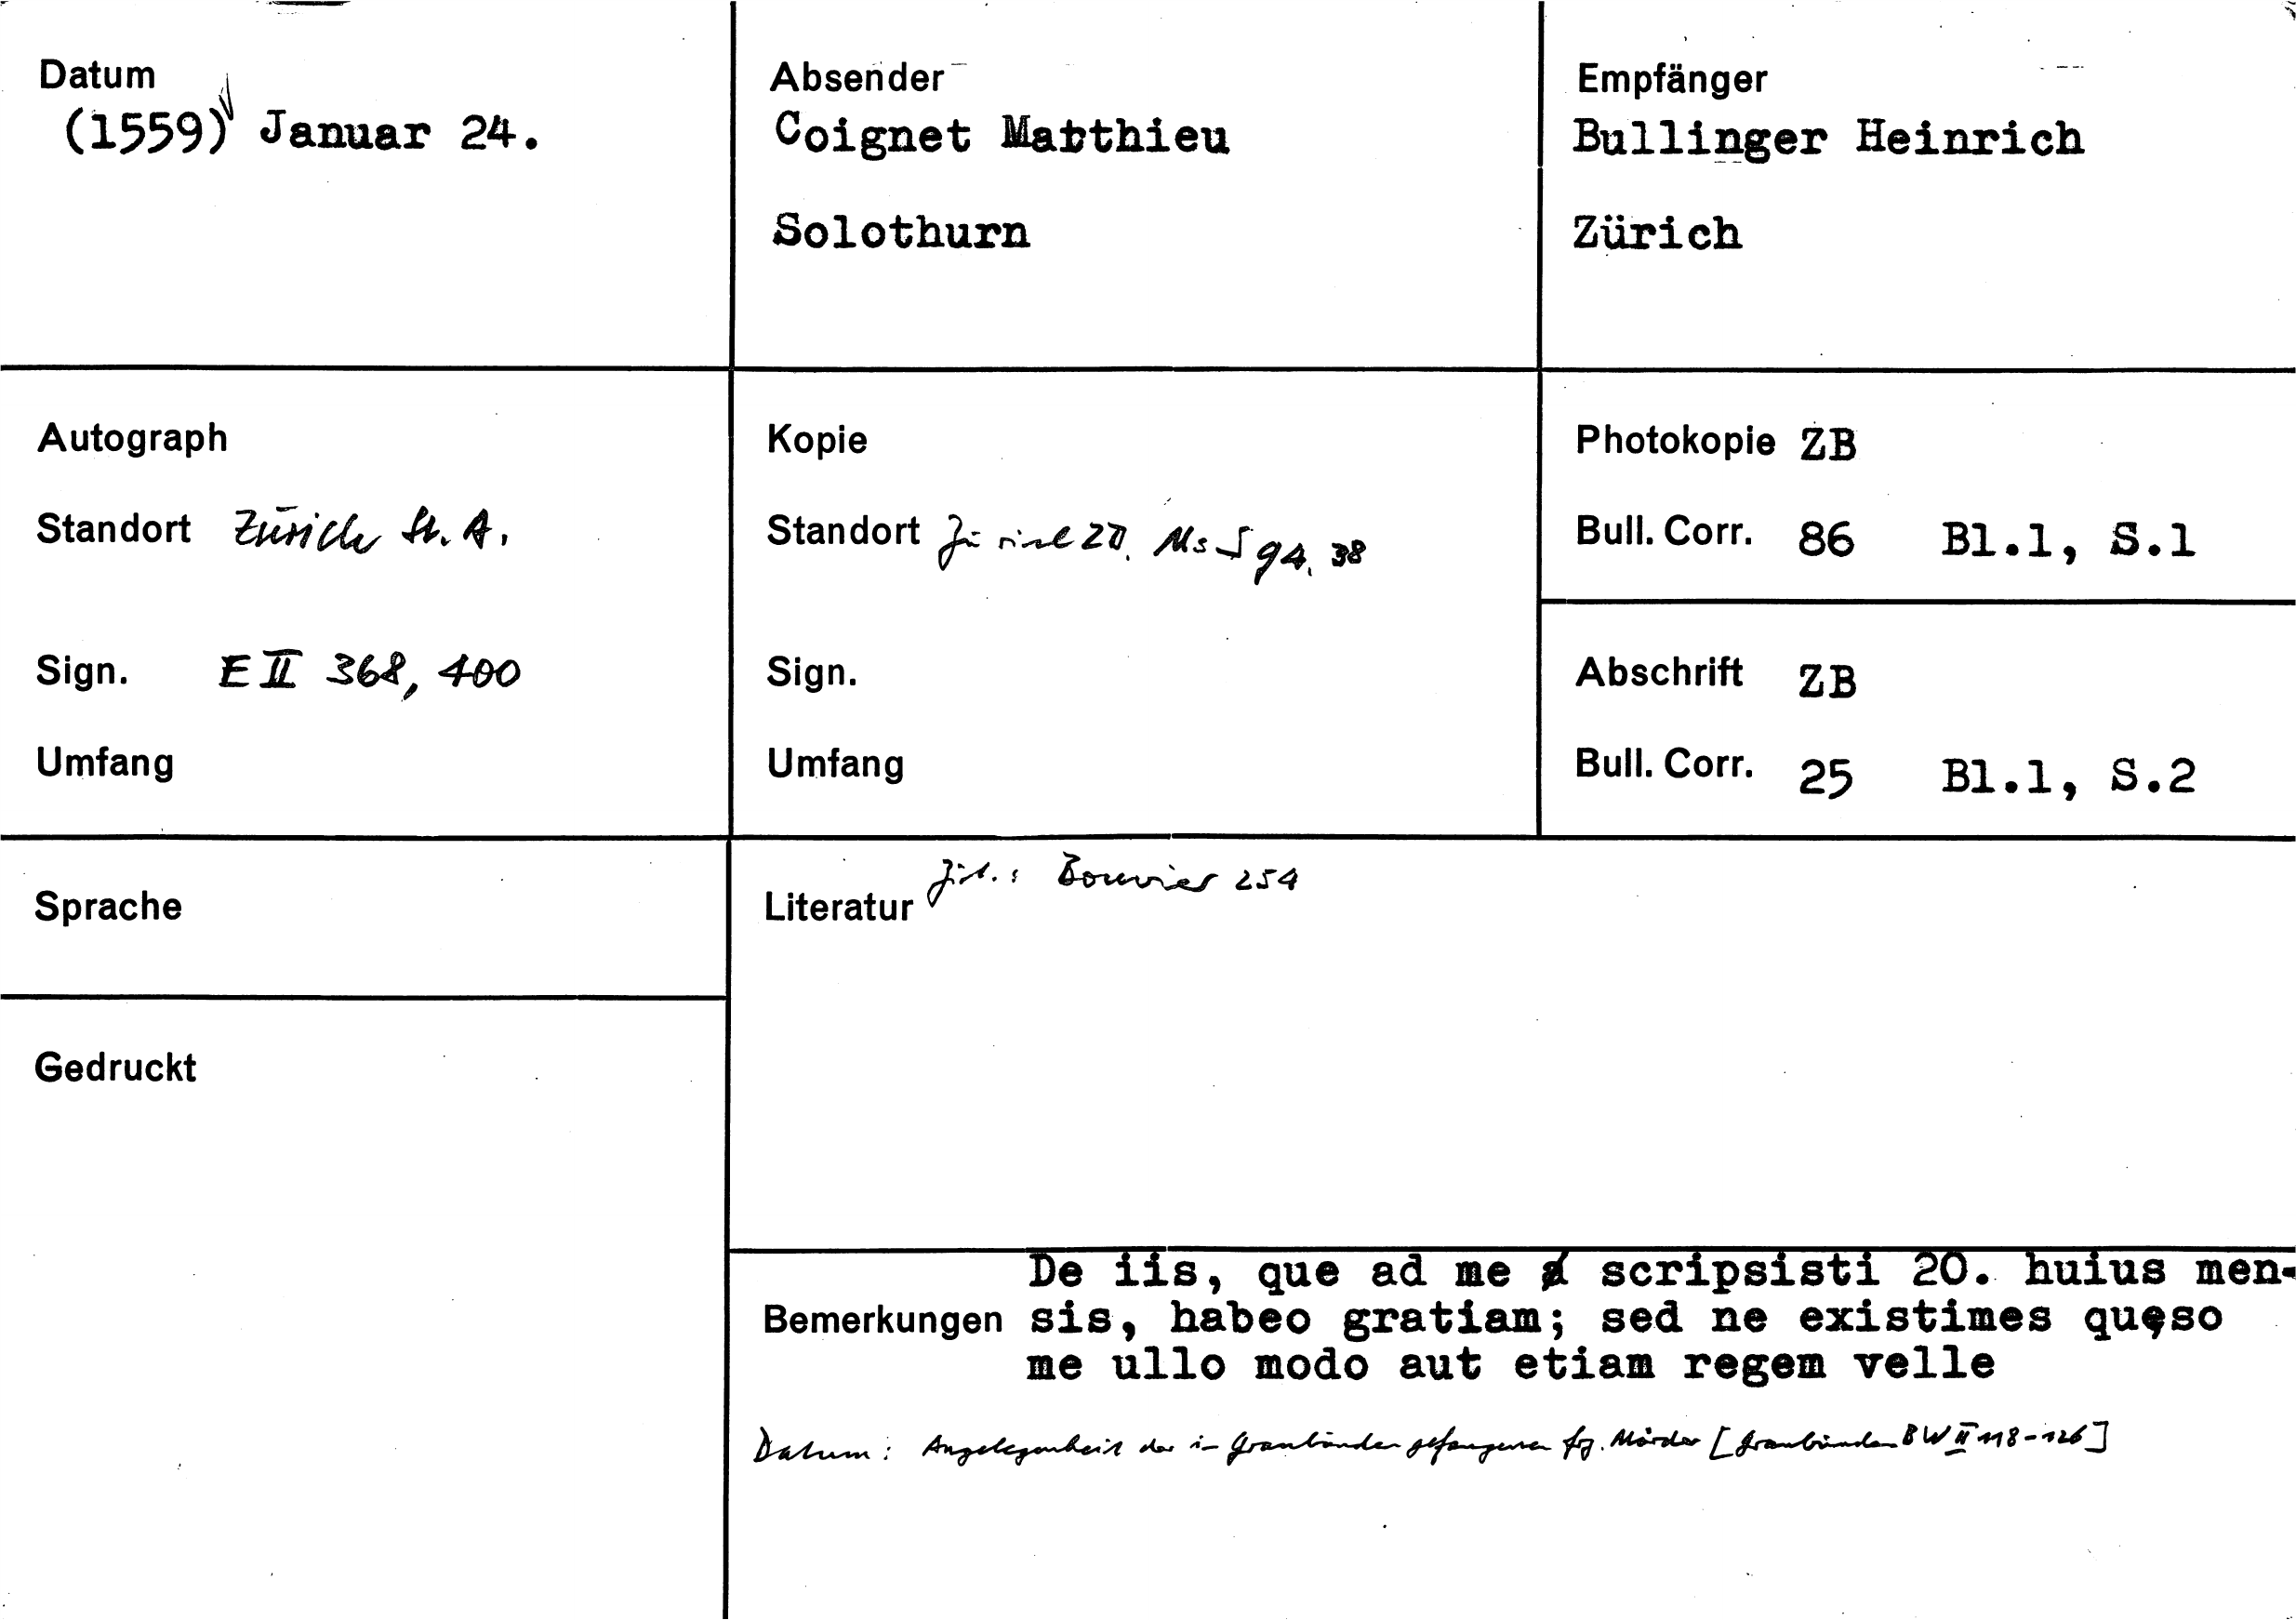 Datum
(1559) Januar 24.
Absender
Coignet Matthieu
Solothurn
Empfänger
Bullinger Heinrich
Zürich
Autograph
Standort Zürich St. A.
Sign. E II 368, 400
Umfang
Kopie
Standort Zürich ZB. Ms S 94, 38
Sign.
Umfang
Photokopie ZB
Bull. Corr. 86 Bl.1, S.1
Abschrift ZB
Bull. Corr. 25 Bl.1, S.2
Sprache
Gedruckt
Literatur Zit.: Bouvier 254
Bemerkungen
De iis, que ad me scripsisti 20. huius men-
sis, habeo gratiam; sed ne existimes quęso
me ullo modo aut etiam regem velle
Datum: Angelegenheit der in Graubünden gefangenen frz. Mörder [Graubünden BW II 118-126]